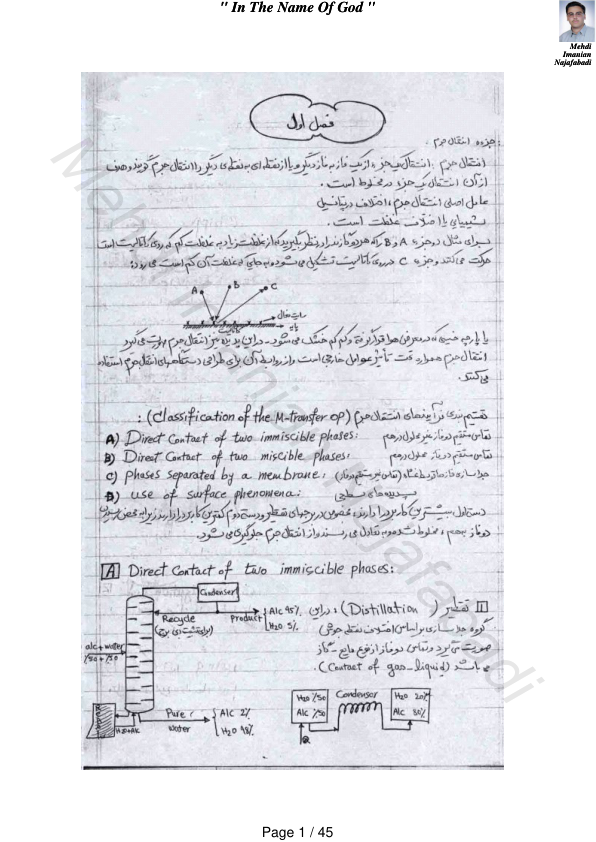 " In The Name Of God "
Mehdi
Imanian
Najafabadi
فصل اول
جزوه انتقال جرم :
انتقال جرم : انتقال یک جزء از یک فاز به فاز دیگر و یا از نقطه‌ای به نقطه‌ی دیگر را انتقال جرم گویند و هدف
از آن انتقال یک جزء در مخلوط است .
عامل اصلی انتقال جرم ، اختلاف در پتانسیل
شیمیایی یا اختلاف غلظت است .
برای مثال دو جزء A و B را که هر دو گازند در نظر بگیرید که از غلظت زیاد به غلظت کم که روی کاتالیست است
حرکت می‌کنند و جزء C در روی کاتالیست تشکیل می‌شود و به جایی که غلظت آن کم است می‌رود:
A B C
سایت فعال
پایه
کاتالیست
یا پارچه خیسی که در معرض هوا قرار گرفته و کم کم خشک می‌شود - در این پدیده نیز انتقال جرم صورت می‌گیرد
انتقال جرم همواره تحت تأثیر عوامل خارجی است و از روابط آن برای طراحی دستگاههای انتقال جرم استفاده
می‌کنند.
تقسیم بندی فرآیندهای انتقال جرم (Classification of the M-transfer op) :
A) Direct Contact of two immiscible phases: تماس مستقیم دو فاز غیر محلول در هم
B) Direct Contact of two miscible phases: تماس مستقیم دو فاز محلول در هم
C) phases separated by a membrane: جداسازی فازها توسط غشاء (تماس غیر مستقیم دو فاز)
D) use of surface phenomena: پدیده های سطحی
دسته اول بیشترین کاربرد را دارند بخصوص در برجهای تقطیر و دسته دوم کمترین کاربرد را دارند زیرا به محض رسیدن
دو فاز بهم ، مخلوط شده و به تعادل می‌رسند و از انتقال جرم جلوگیری می‌شود.
A Direct Contact of two immiscible phases:
1 تقطیر (Distillation) : در این
گروه جداسازی بر اساس اختلاف نقطه جوش
صورت می‌گیرد و تماس دو فاز از نوع مایع - گاز
می باشد (Contact of gas-liquid).
Condenser
Recycle
Product
Alc 95%
H2O 5%
alc + water
%50 + %50
H2O+Alc
Pure
water
Alc 2%
H2O 98%
H2O %50
Alc %50
Condenser
H2O 20%
Alc 80%
Q
Mehdi Imanian Najafabadi
Page 1 / 45